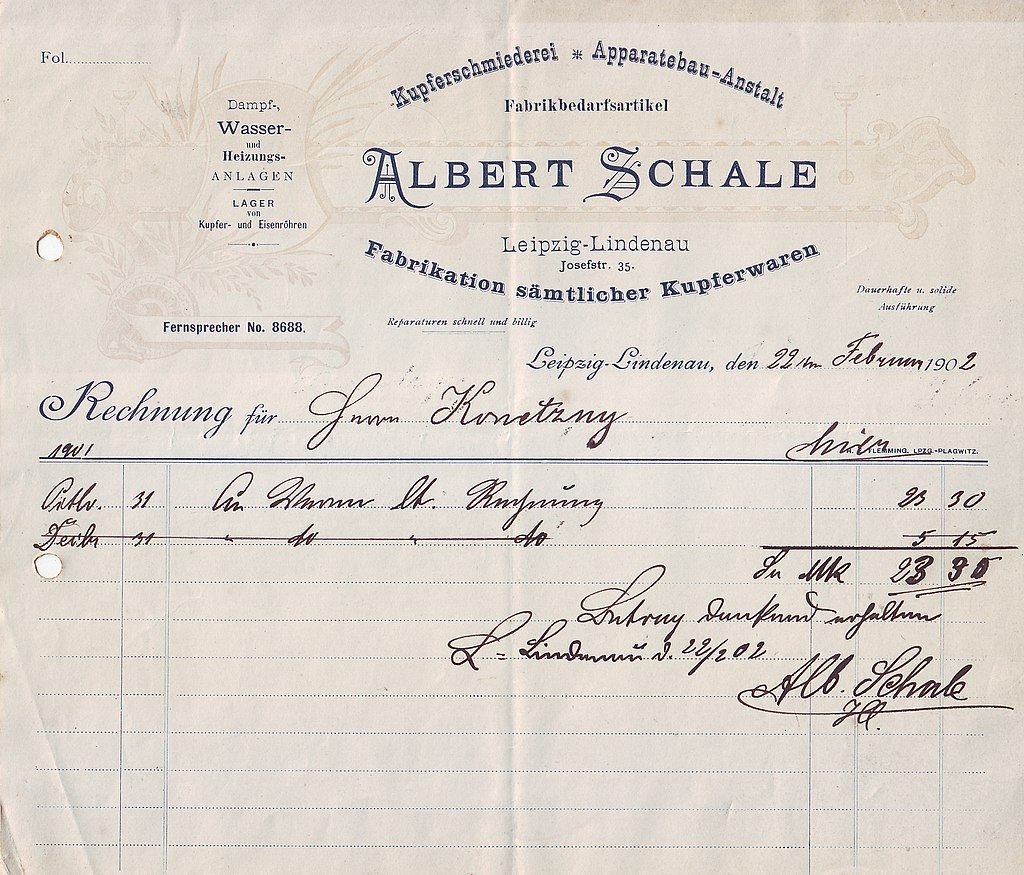 Fol.
Kupferschmiederei * Apparatebau-Anstalt
Fabrikbedarfsartikel
Dampf-,
Wasser-
und
Heizungs-
ANLAGEN
LAGER
von
Kupfer- und Eisenröhren
ALBERT SCHALE
Leipzig-Lindenau
Josefstr. 35.
Fabrikation sämtlicher Kupferwaren
Dauerhafte u. solide
Ausführung
Fernsprecher No. 8688.
Reparaturen schnell und billig
Leipzig-Lindenau, den 22ten Februar 1902
Rechnung für Herrn Konetzny
1901 hier
FLEMMING, LPZG.-PLAGWITZ.
Octbr. 31 An Waren lt. Rechnung 23 30
31 " do " do 5 15
Sa Mk 23 30
Betrag dankend erhalten
L= Lindenau d. 22/2 02
Alb. Schale